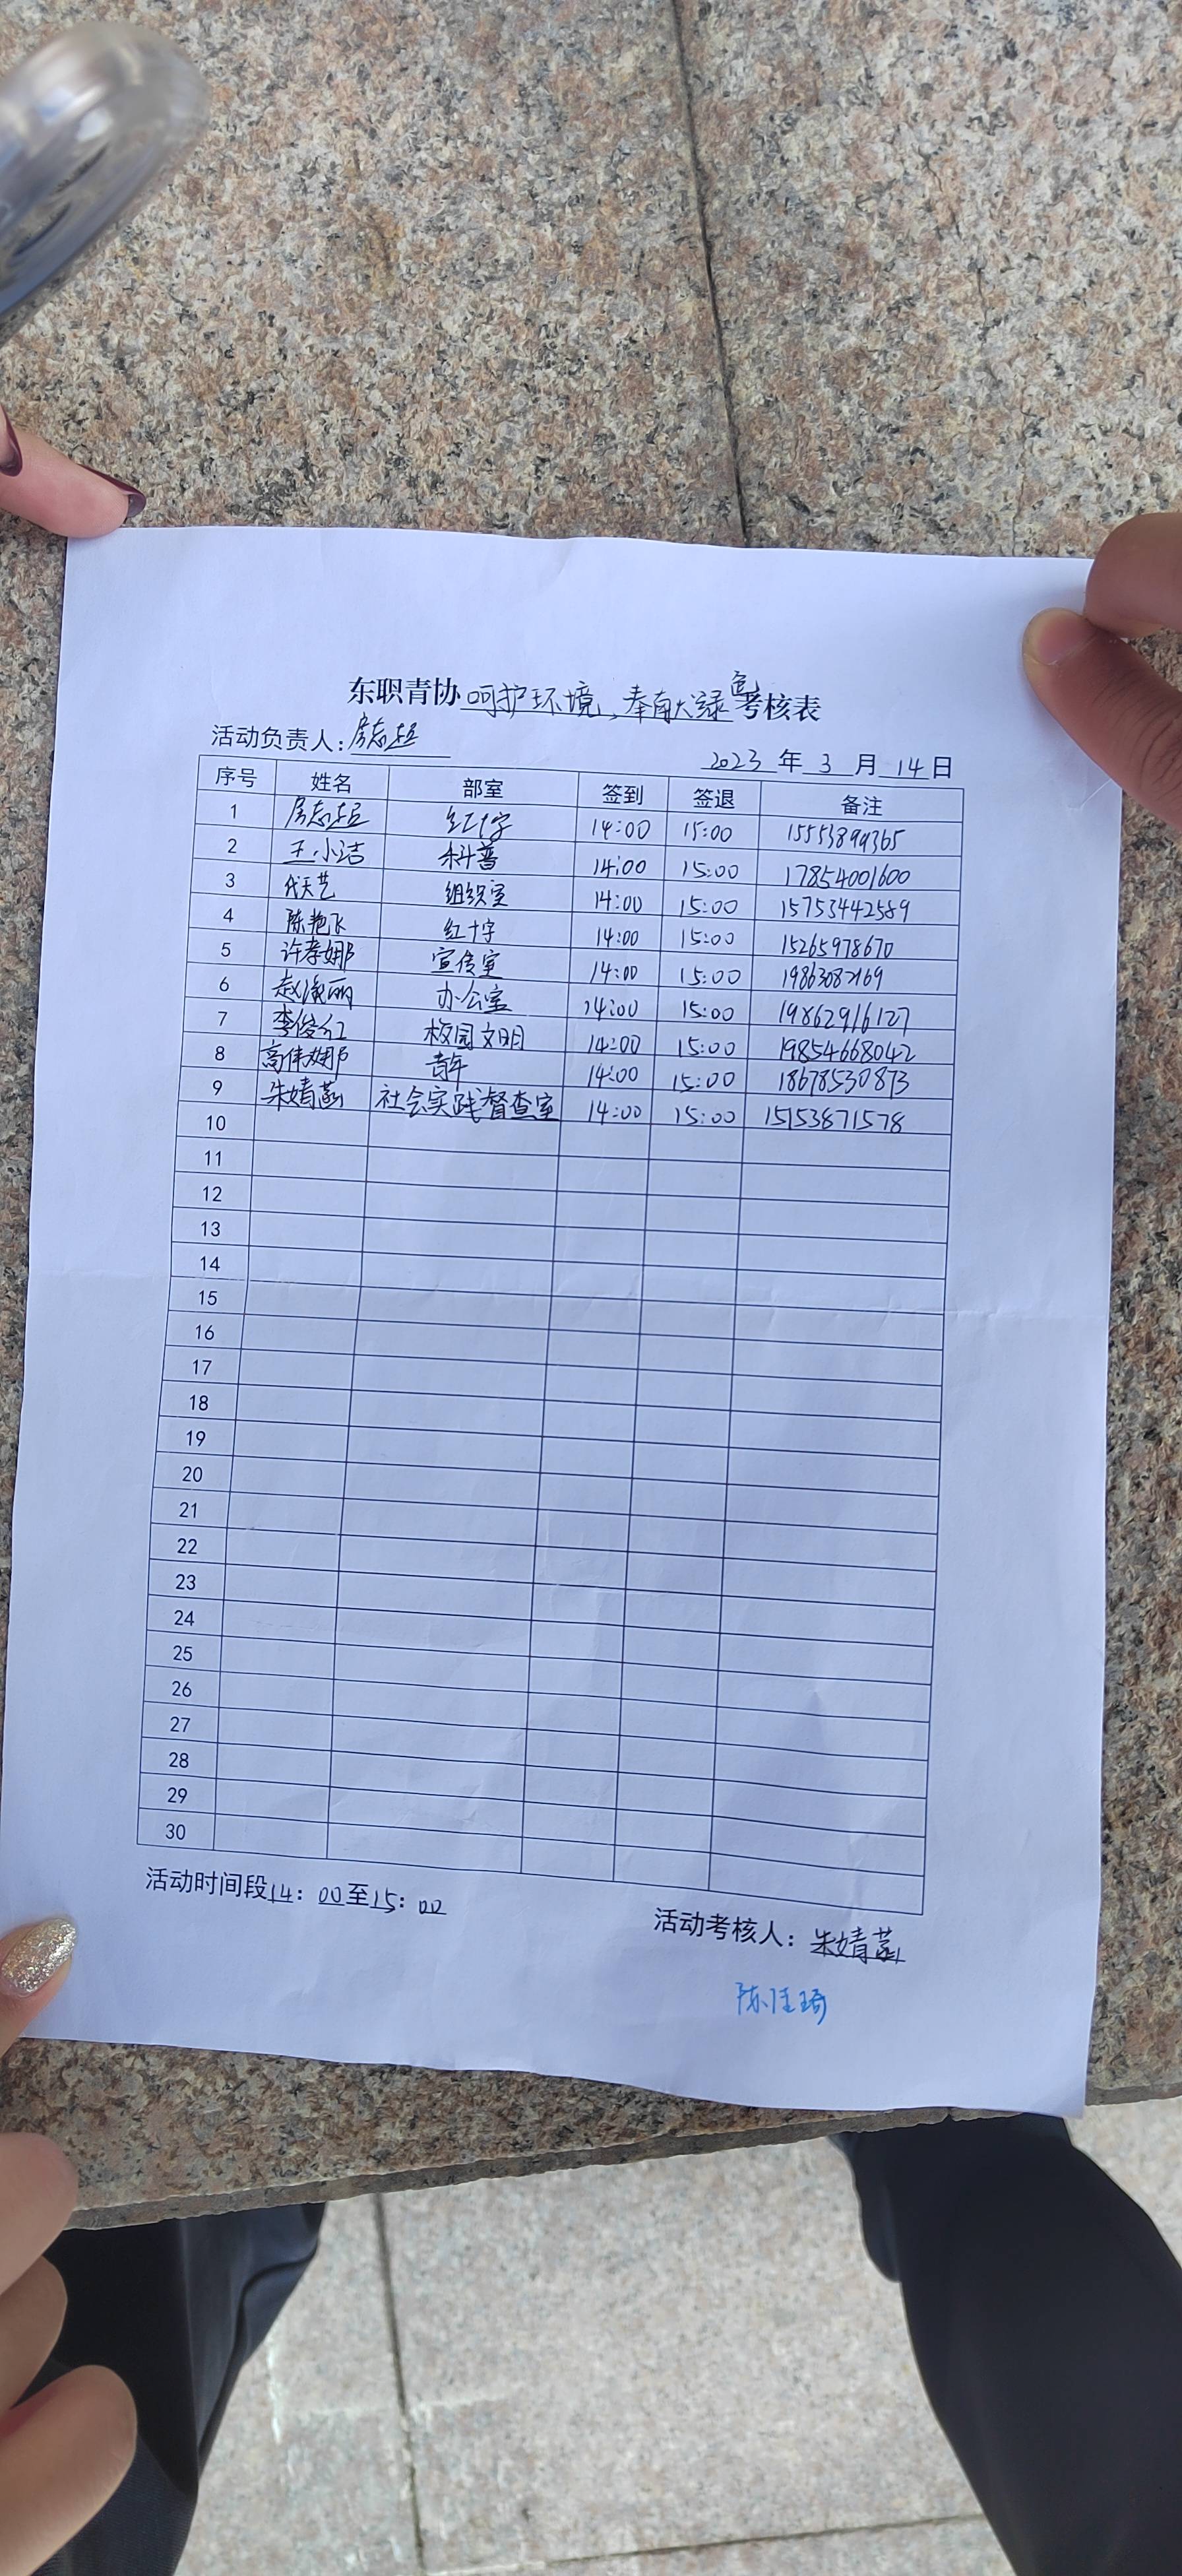 东职青协 呵护环境，奉献绿色 考核表
活动负责人：房志超
2023 年 3 月 14 日
序号 姓名 部室 签到 签退 备注
1 房志超 红十字 14:00 15:00 15553899365
2 王小洁 科普 14:00 15:00 17854001600
3 代天艺 组织室 14:00 15:00 15753442589
4 陈艳飞 红十字 14:00 15:00 15265978670
5 许孝娜 宣传室 14:00 15:00
6 办公室 14:00 15:00 19862916127
7 李俊红 校园文明 14:00 15:00 19854668042
8 高伟娜 青年 14:00 15:00 18678530873
9 朱婧菡 社会实践督查室 14:00 15:00 15153871578
10
11
12
13
14
15
16
17
18
19
20
21
22
23
24
25
26
27
28
29
30
活动时间段14：00至15：00
活动考核人：朱婧菡
陈佳琦